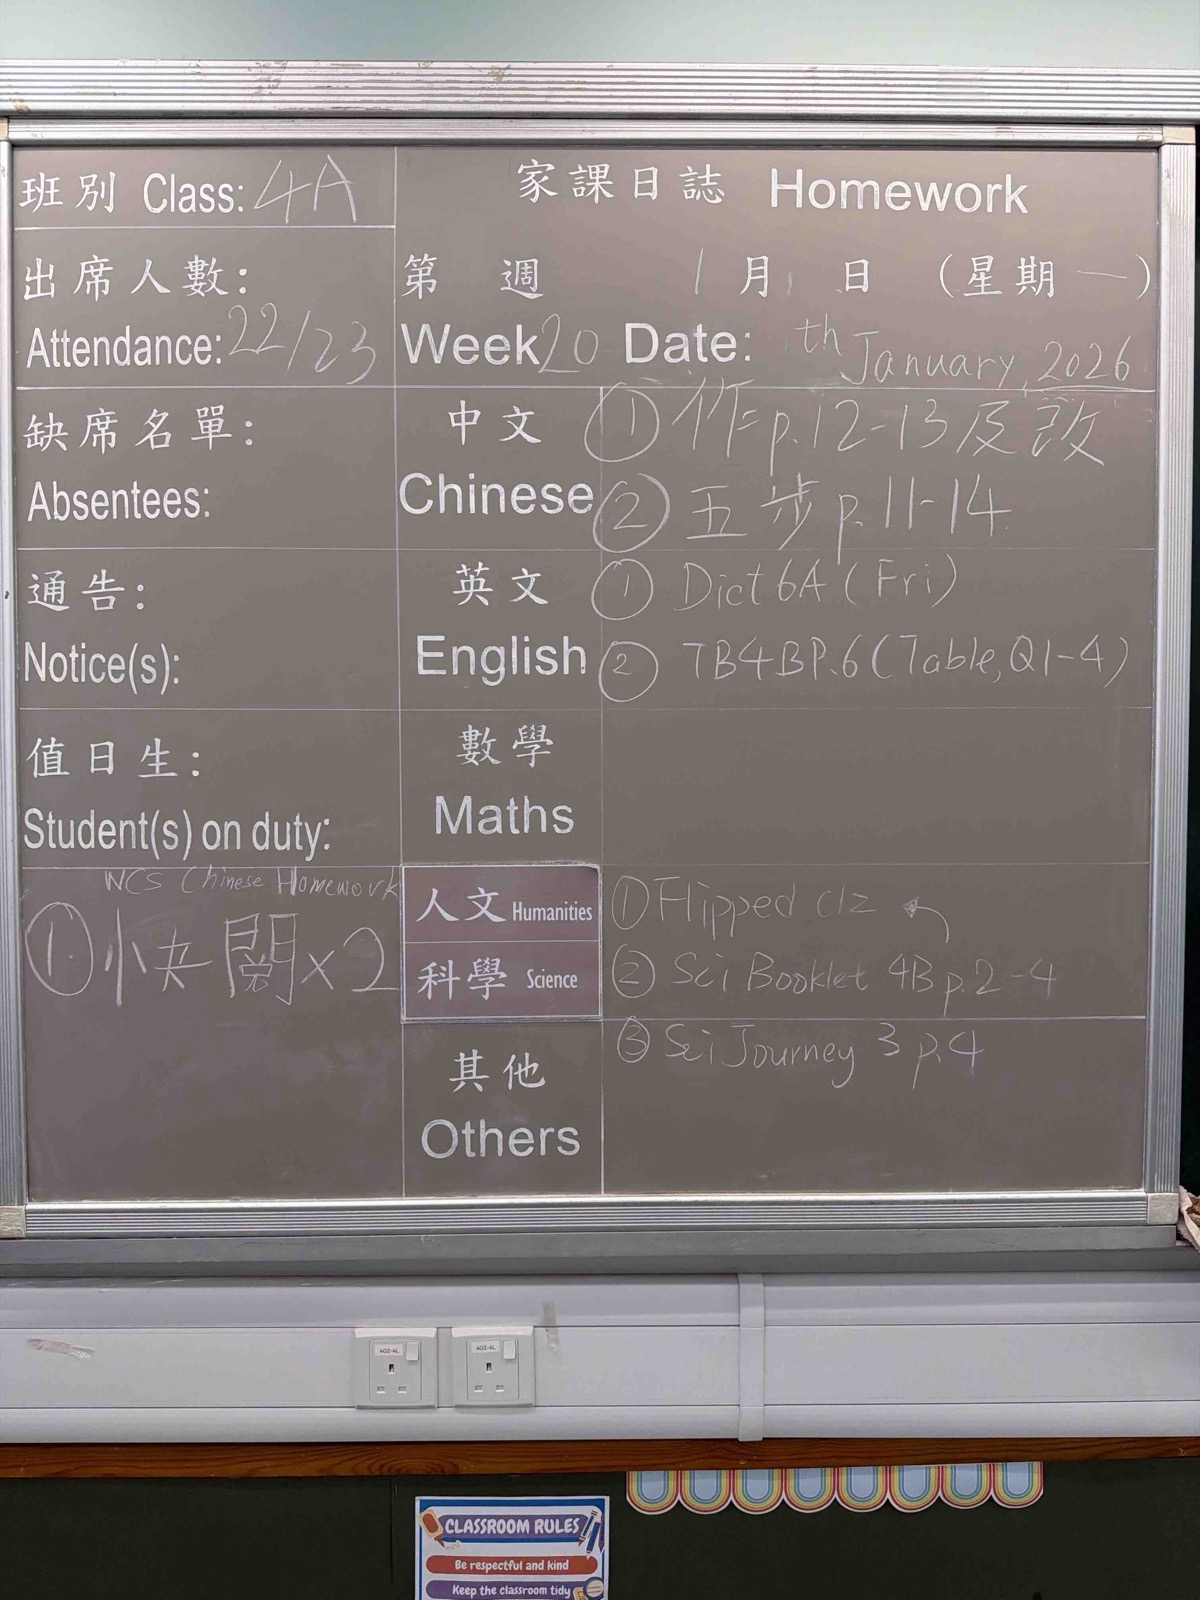 班別 Class: 4A
家課日誌 Homework
出席人數:
Attendance: 22/23
第 週 1月 日 (星期一)
Week 20 Date: th January, 2026
缺席名單:
Absentees:
中文
Chinese
① 作 p.12-13及改
② 五步 p.11-14
通告:
Notice(s):
英文
English
① Dict 6A (Fri)
② TB4B P.6 (Table, Q1-4)
值日生:
Student(s) on duty:
數學
Maths
NCS Chinese Homework
① x2
人文 Humanities
科學 Science
① Flipped clz
② Sci Booklet 4B p.2-4
③ Sci Journey 3 p.4
其他
Others
402-4L
402-4L
CLASSROOM RULES
Be respectful and kind
Keep the classroom tidy